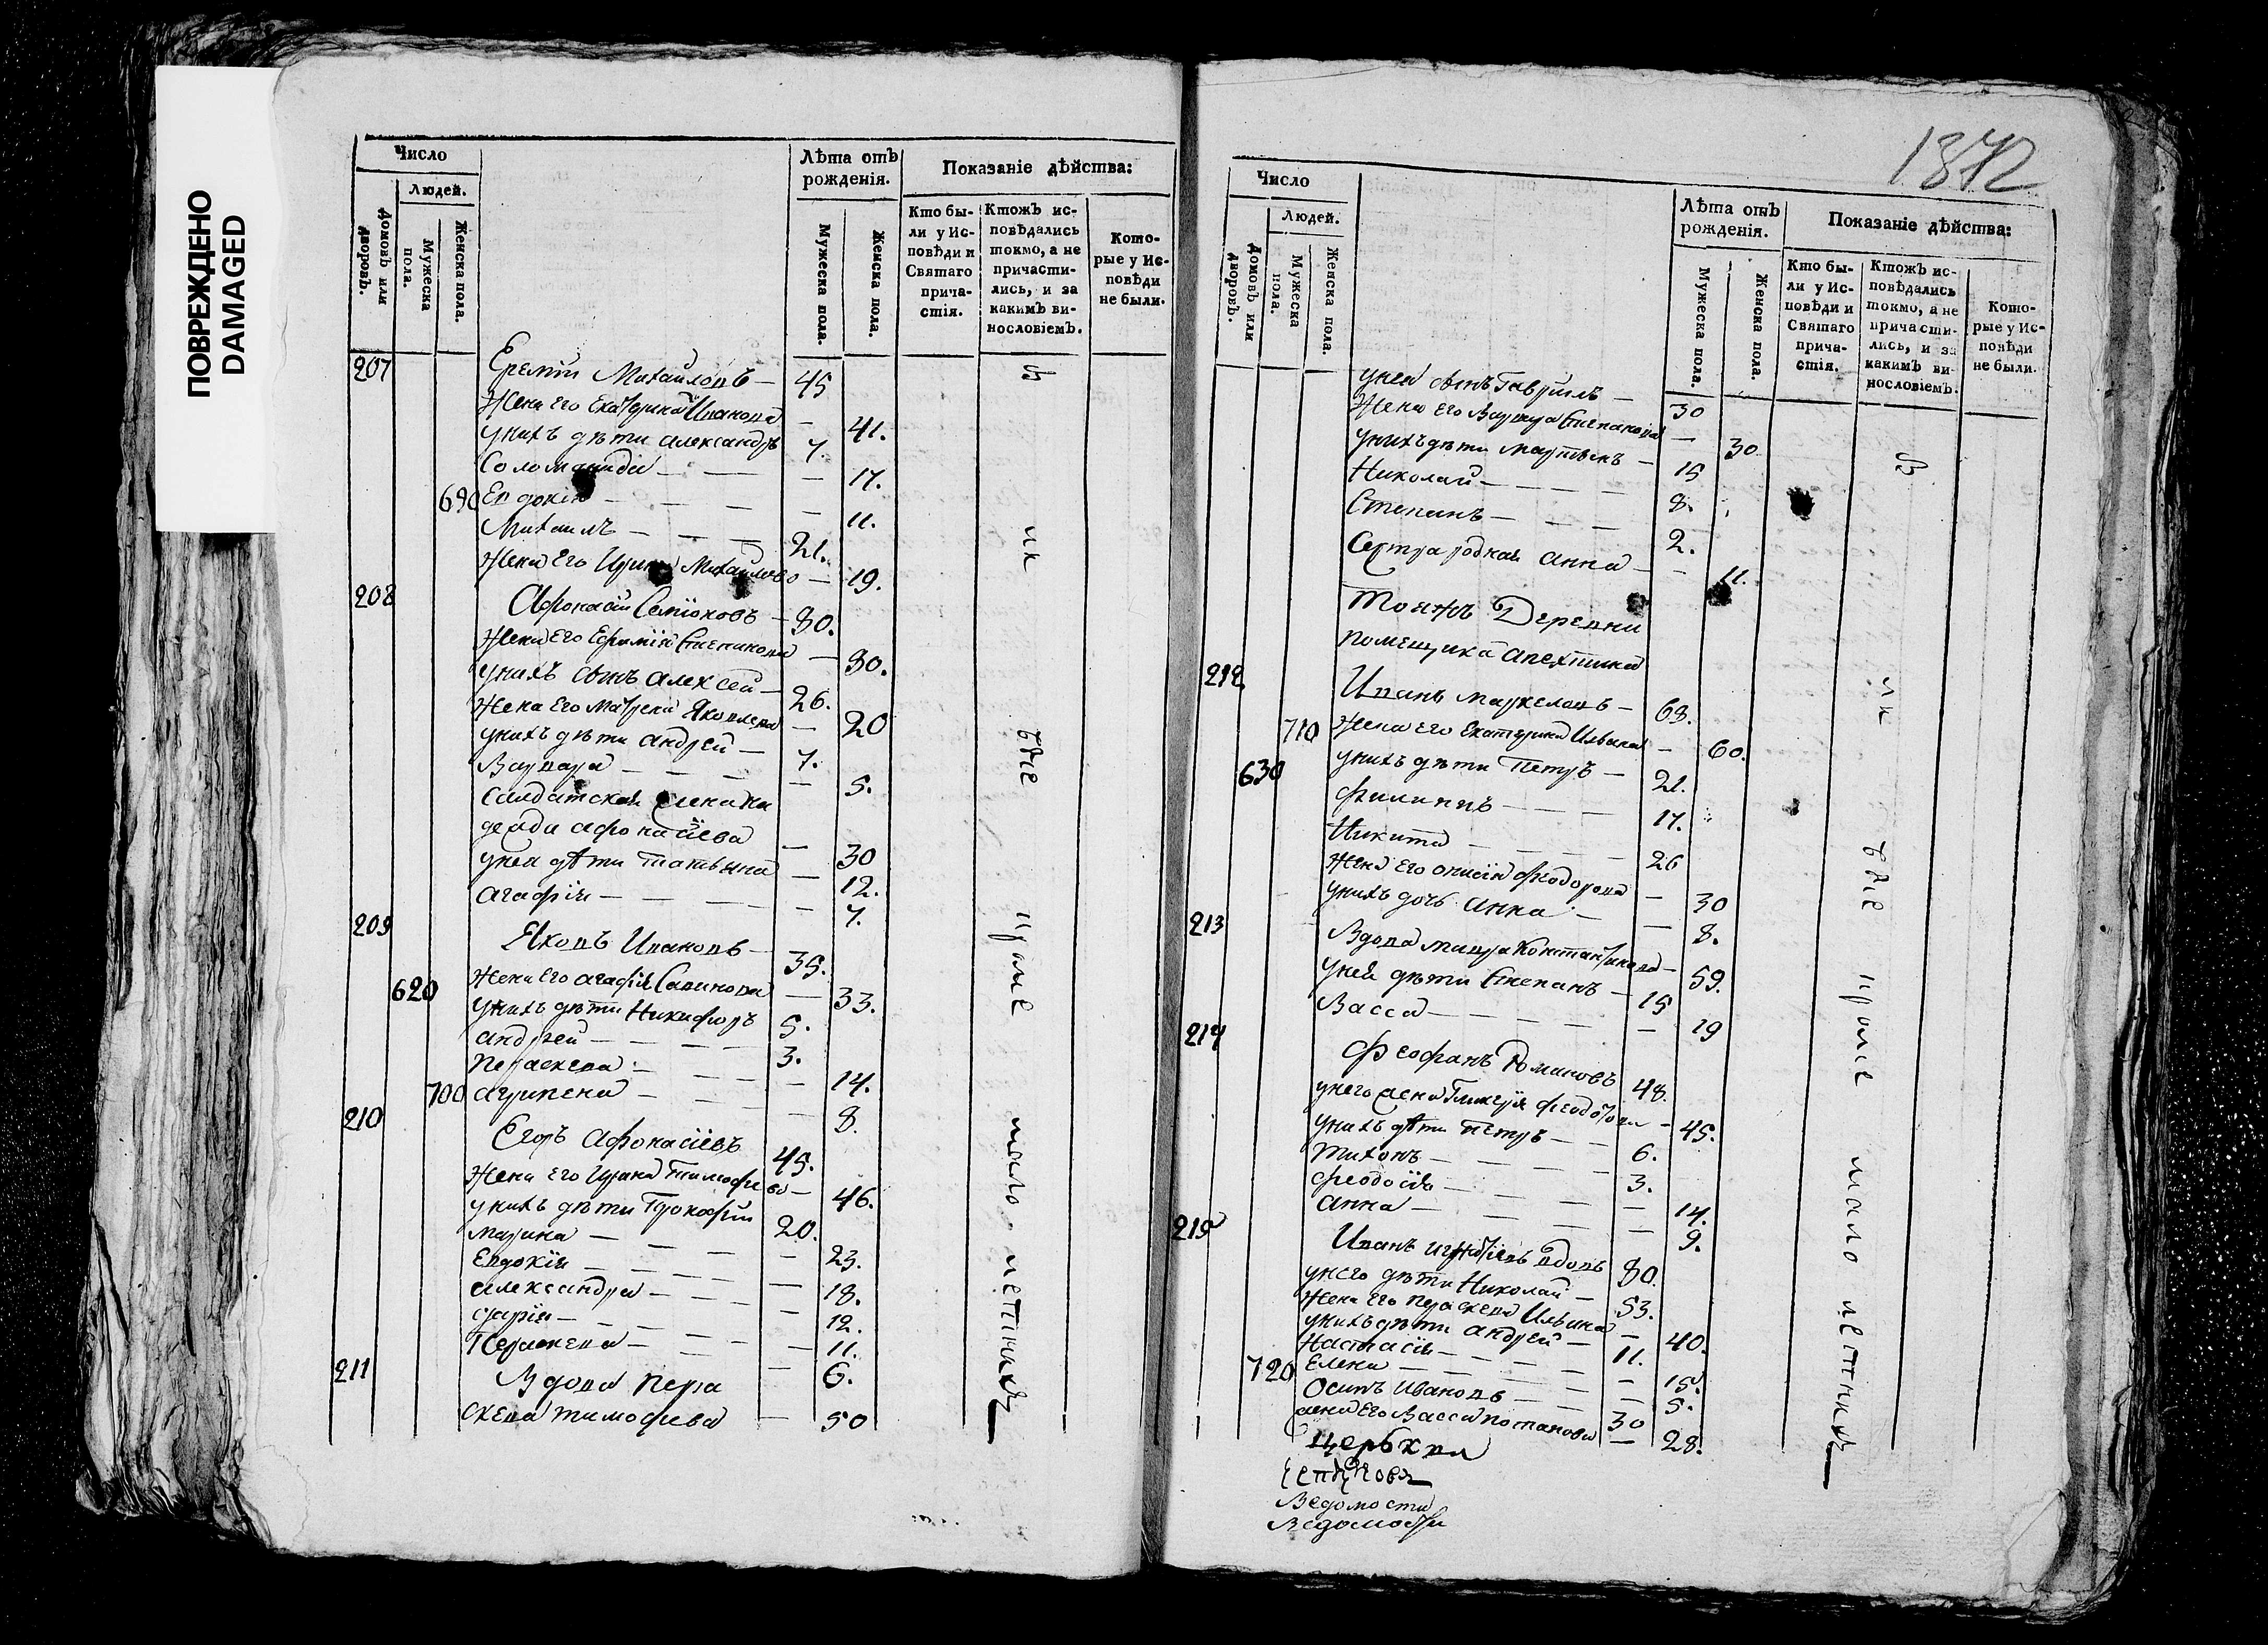 ПОВРЕЖДЕНО
DAMAGED
Число
Людей.
Домовъ или дворовъ.
Мужеска пола.
Женска пола.
Лѣта отъ рожденія.
Мужеска пола.
Женска пола.
Показаніе дѣйства:
Кто бы-
ли у Ис-
повѣди и
Святаго
прича-
стія.
Ктожъ ис-
повѣдались
токмо, а не
причасти-
лись, и за
какимъ ви-
нословіемъ.
Кото-
рые у Ис-
повѣди
не были.
207 Еремѣй Михайловъ — 45
Жена Его Екатерина Иванова — 41.
у нихъ дѣти Александръ 7.
Соломанида — — 17.
690 Евдокія — — — 11.
Михаилъ — — — 21.
Жена Его Ирина Михайлова — 19.
208 Афонасій Семіоновъ — 30.
Жена Его Ефимія Степанова — 30.
у нихъ сынъ Алексей — 26.
Жена Его Матрена Яковлева — 20
у нихъ дѣти Андрей — 7.
Варвара — — — 5.
Салдатская жена
Афонасіева — 30
у неи дѣти Татьяна — 12.
Агафія — — — 7.
209 Яковъ Ивановъ — 35.
Жена Его Агафія Савинова — 33.
620 у нихъ дѣти Никифоръ 5.
Андрей — — — 3.
Пераскева — — — 14.
700 Агрипена — — — 8.
210 Егоръ Афонасіевъ 45.
Жена Его Ирина Тимофева — 46.
у нихъ дѣти Прокофій 20.
Марина — — — 23.
Евдокія — — — 18.
Александра — — — 12.
Дарія — — — 11.
Пераскева — — 6.
211 Вдова Пера
скева Тимофева — 50
В
ик
ыѣ
іромѣ
мало
летнихъ
1372
Число
Людей.
Домовъ или дворовъ.
Мужеска пола.
Женска пола.
Лѣта отъ рожденія.
Мужеска пола.
Женска пола.
Показаніе дѣйства:
Кто бы-
ли у Ис-
повѣди и
Святаго
прича-
стія.
Ктожъ ис-
повѣдались
токмо, а не
причасти-
лись, и за
какимъ ви-
нословіемъ.
Кото-
рые у Ис-
повѣди
не были.
у неи сынъ Гавриилъ — 30
Жена Его Варвара Степанова — 30
у нихъ дѣти Мартинъ — 15
Николай — — — 8.
Степанъ — — — 2.
Сестра родная Анна — 11.
Тояжъ Деревни
помещика Апехтина
212 Иванъ Маркеловъ — 68.
710 Жена Его Екатерина Ильина — 60.
630 у нихъ дѣти Петръ — 21.
Филиппъ — — — 17.
Никита — — — 26
Жена Его Анисія Феодорова — 30
у нихъ дочь Анна — 8.
213 Вдова Мавра Константинова — 59.
у неи дѣти Степанъ — 15
Васса — — — 19
214 Феофанъ Романовъ 48.
у него жена Гликерія Феодотова — 45.
у нихъ дѣти Петръ — — 6.
Тихонъ — — — 3.
Феодосія — — — 14.
Анна — — — 9.
215 Иванъ Игнатіевъ вдовъ 80.
у него дѣти Николай — 53.
Жена Его Пераскева Ильина — 40.
у нихъ дѣти Андрей — 11.
Настасія — — — 15.
720 Елена — — — 5.
Осипъ Ивановъ — 30
жена Его Васса Потапова — 28.
В
ик
ыѣ
іромѣ
мало летнихъ
Ведомости
Ведомости